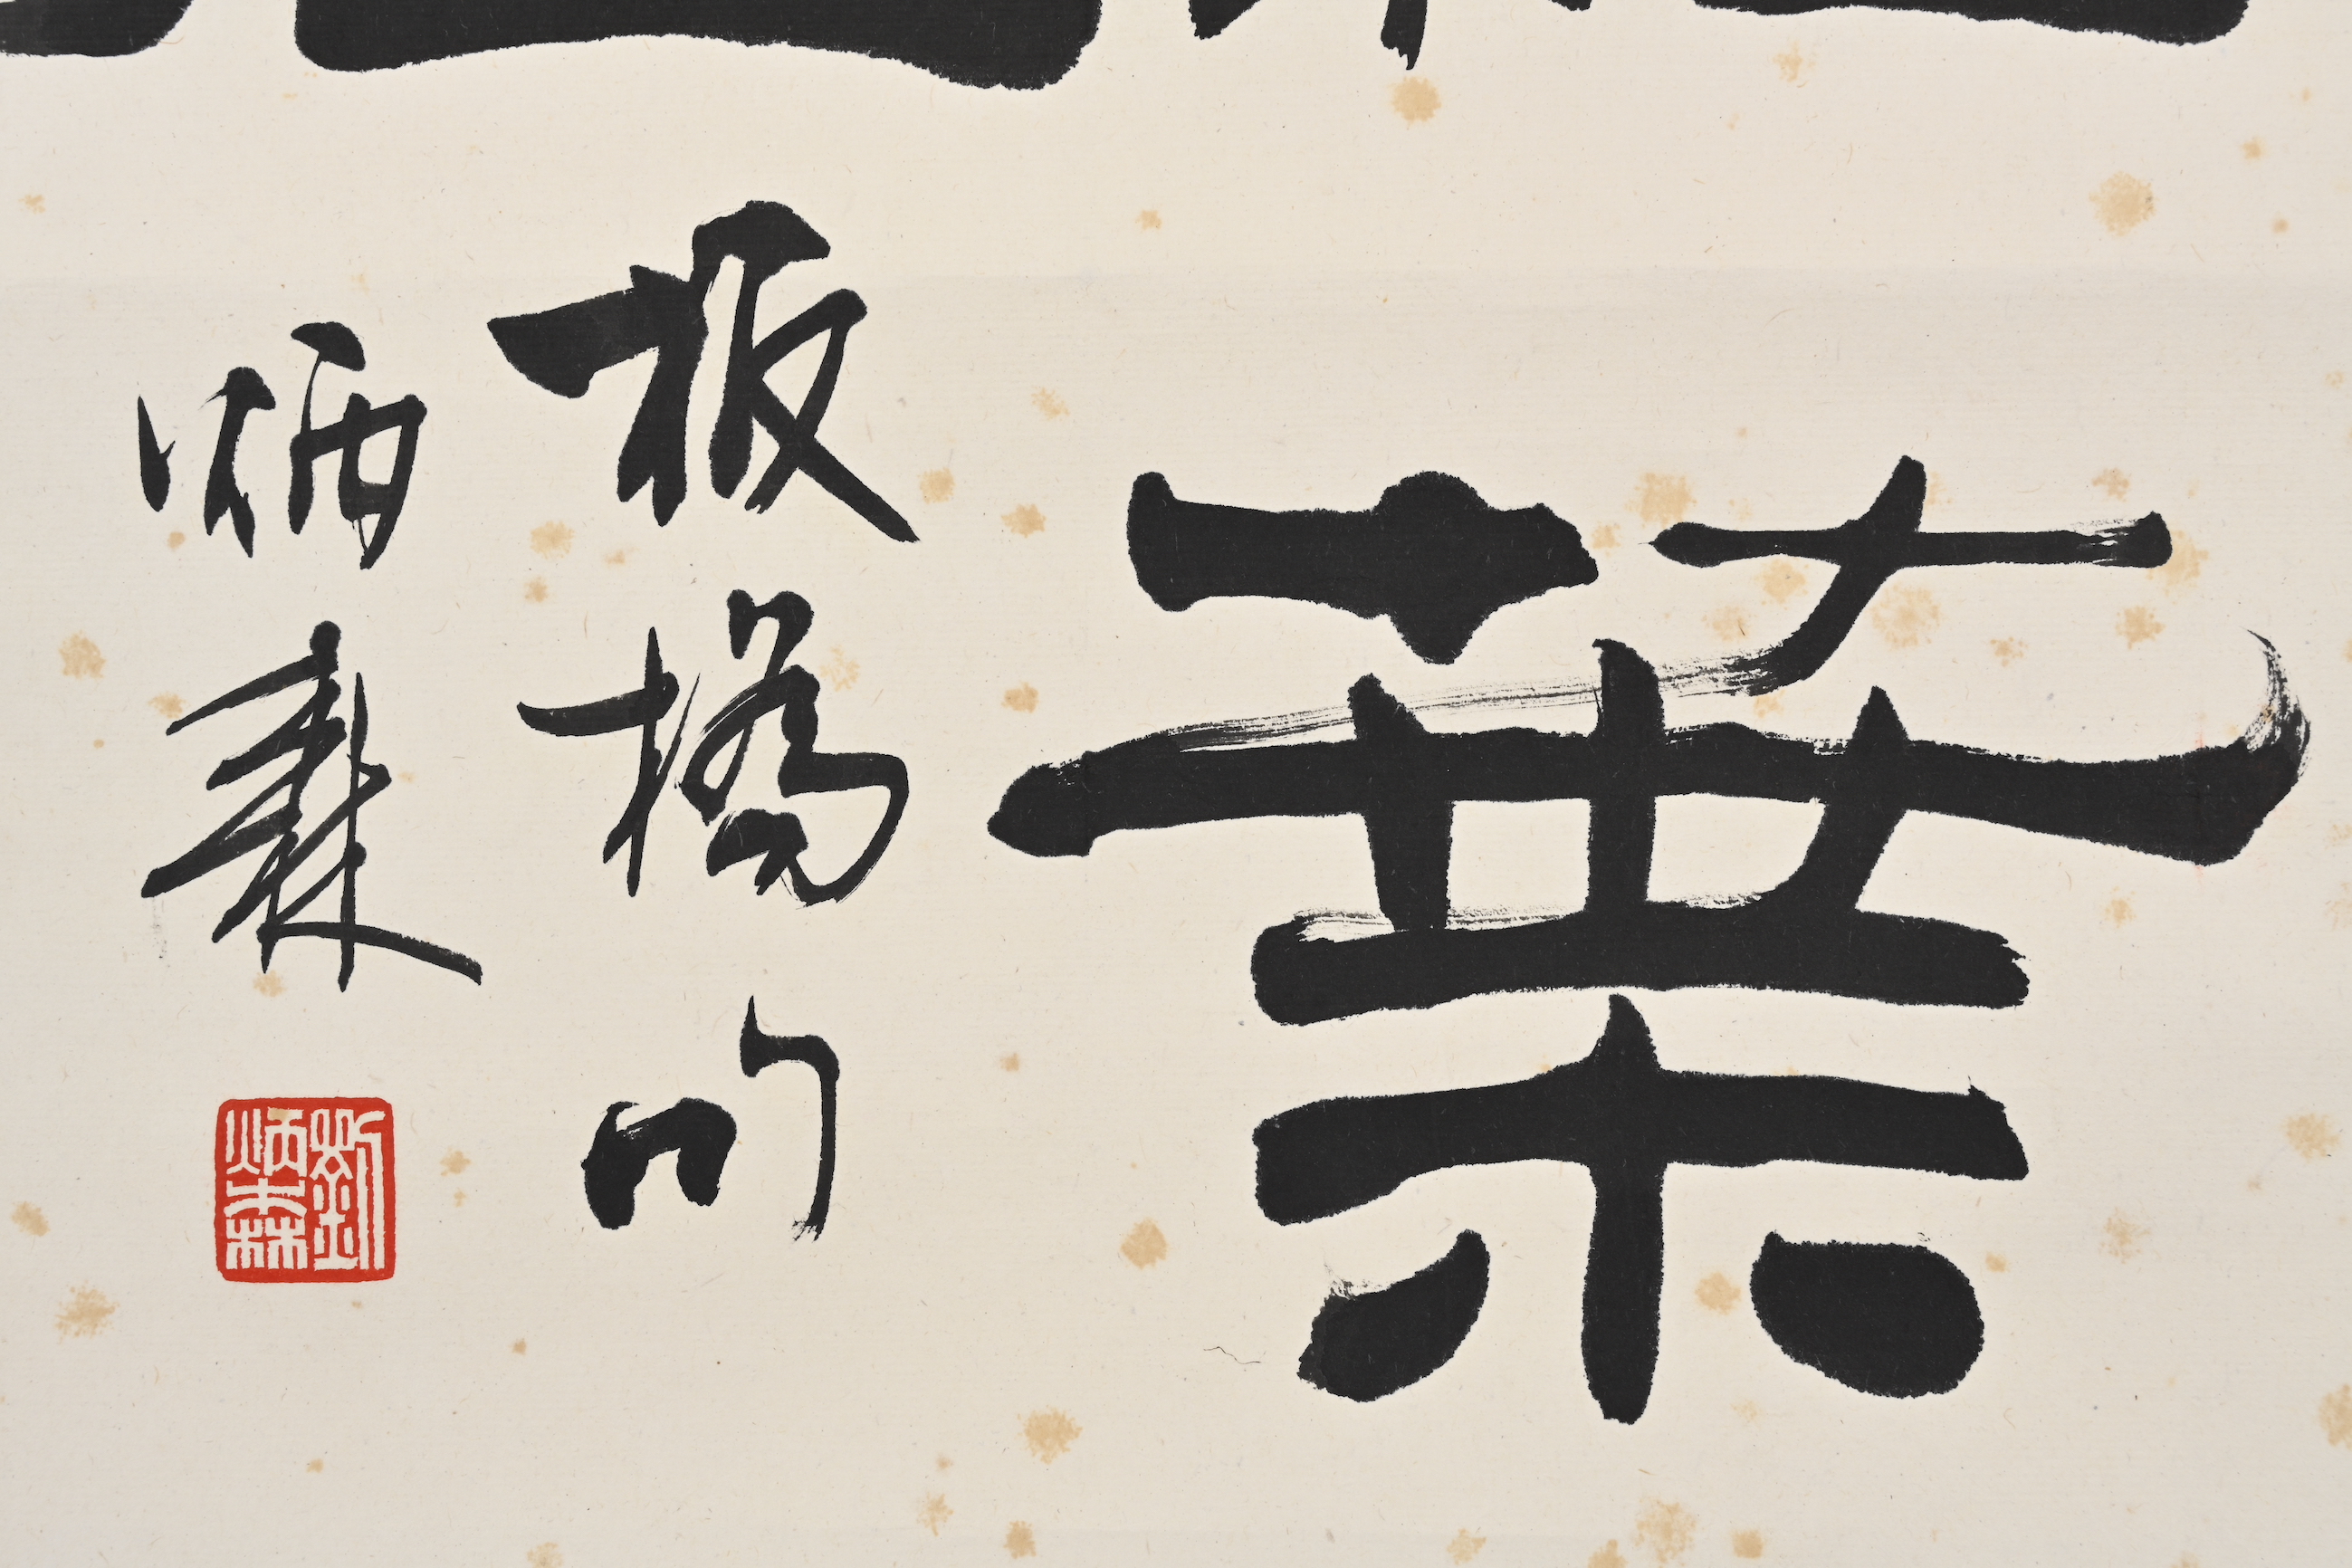 葉
板橋句
炳森
劉炳森